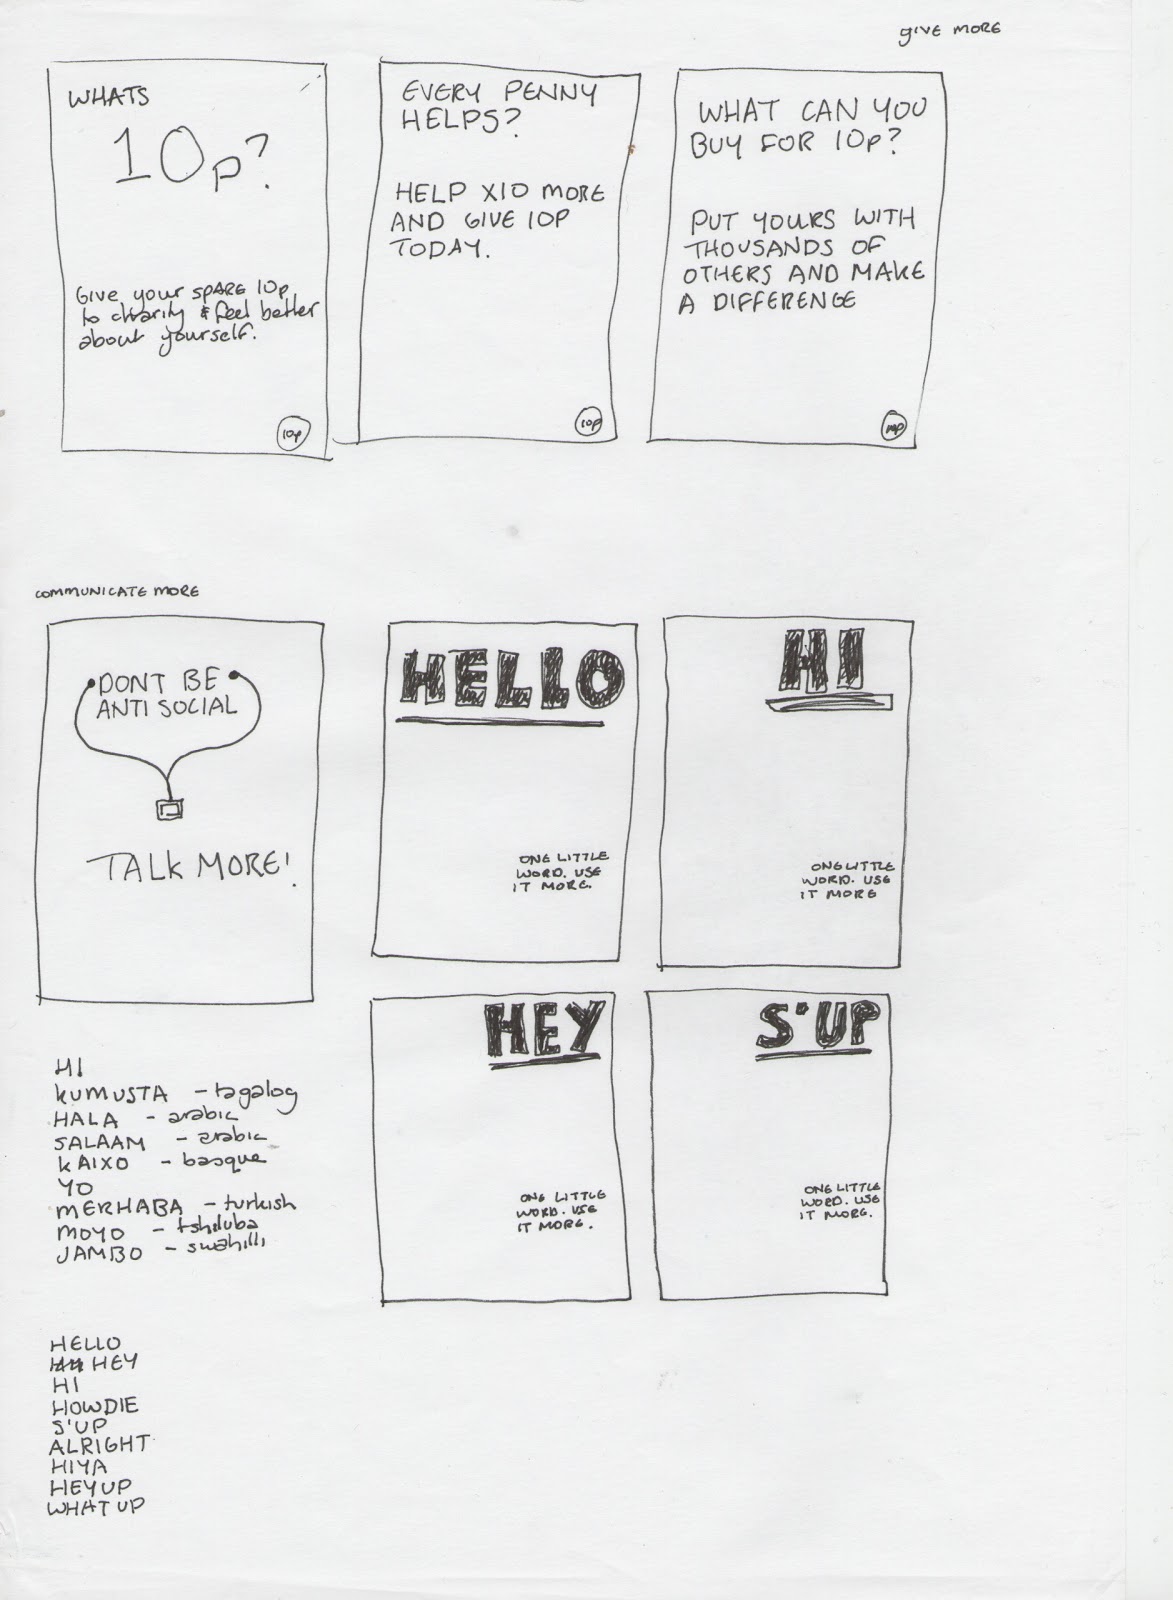 give more
WHATS
10p?
Give your spare 10p
to charity & feel better
about yourself.
10p
EVERY PENNY
HELPS?
HELP X10 MORE
AND GIVE 10P
TODAY.
10p
WHAT CAN YOU
BUY FOR 10p?
PUT YOURS WITH
THOUSANDS OF
OTHERS AND MAKE
A DIFFERENCE
10p
COMMUNICATE MORE
DONT BE
ANTI SOCIAL
TALK MORE!
HELLO
ONE LITTLE
WORD. USE
IT MORE.
HI
ONE LITTLE
WORD. USE
IT MORE
HEY
ONE LITTLE
WORD. USE
IT MORE.
S'UP
ONE LITTLE
WORD. USE
IT MORE.
HI
KUMUSTA - tagalog
HALA - arabic
SALAAM - arabic
KAIXO - basque
YO
MERHABA - turkish
MOYO - tshiluba
JAMBO - swahilli
HELLO
HEY
HI
HOWDIE
S'UP
ALRIGHT
HIYA
HEY UP
WHAT UP